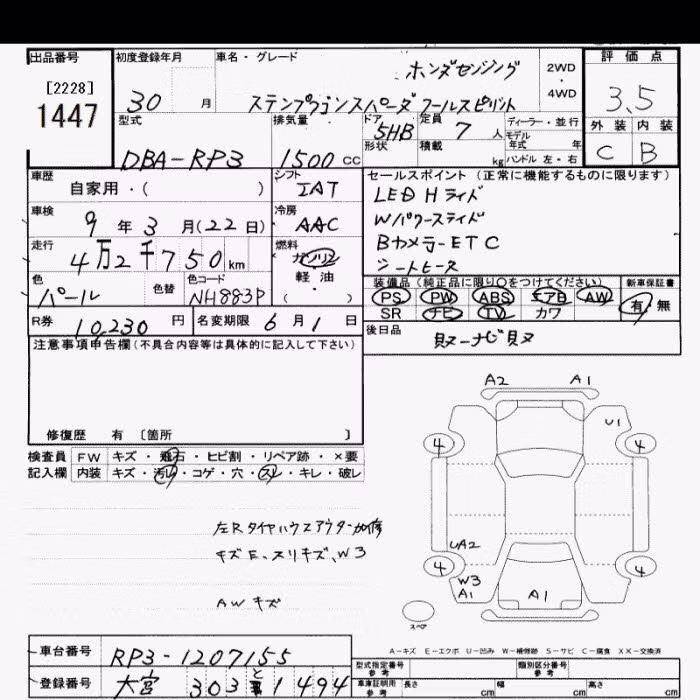 出品番号 初度登録年月 車名・グレード ホンダセンシング 2WD・4WD 評価点
[2228]
1447 30 月 ステップワゴンスパーダ クールスピリット 3.5
型式 DBA-RP3 排気量 1500 cc ドア形状 5HB 定員 7 人 積載 kg ディーラー・並行 モデル年式 年 ハンドル 左・右 外装 C 内装 B
車歴 自家用・( ) シフト IAT セールスポイント(正常に機能するものに限ります)
車検 9年3月(22日) 冷房 AAC LED Hライト
W パワースライド
走行 4万2千750km 燃料 ガソリン 軽油 ・( ) Bカメラ-ETC
シートヒータ
色 パール 色替 色コード NH883P 装備品(純正品に限り○をつけてください) 新車保証書
PS PW ABS エアB AW 有・無
SR ナビ TV カワ
R券 10,230円 名変期限 6月1日 後日品
注意事項申告欄(不具合内容等は具体的に記入して下さい)
修復歴 有 〔箇所 〕
A2 A1
U1
4 4
UA2
4 4
W3
A1 A1
スペア
検査員記入欄 FW キズ・飛石・ヒビ割・リペア跡・×要
内装 キズ・汚れ・コゲ・穴・スレ・キレ・破レ
左Rタイヤハウスアウター加修
キズE、スリキズ、W3
AWキズ
A-キズ E-エクボ U-凹み W-補修跡 S-サビ C-腐食 XX-交換済
車台番号 RP3-1207155 型式指定番号 参考 類別区分番号 参考
登録番号 大宮 303 と 1494 車庫証明用 参考 長さ cm 幅 cm 高さ cm